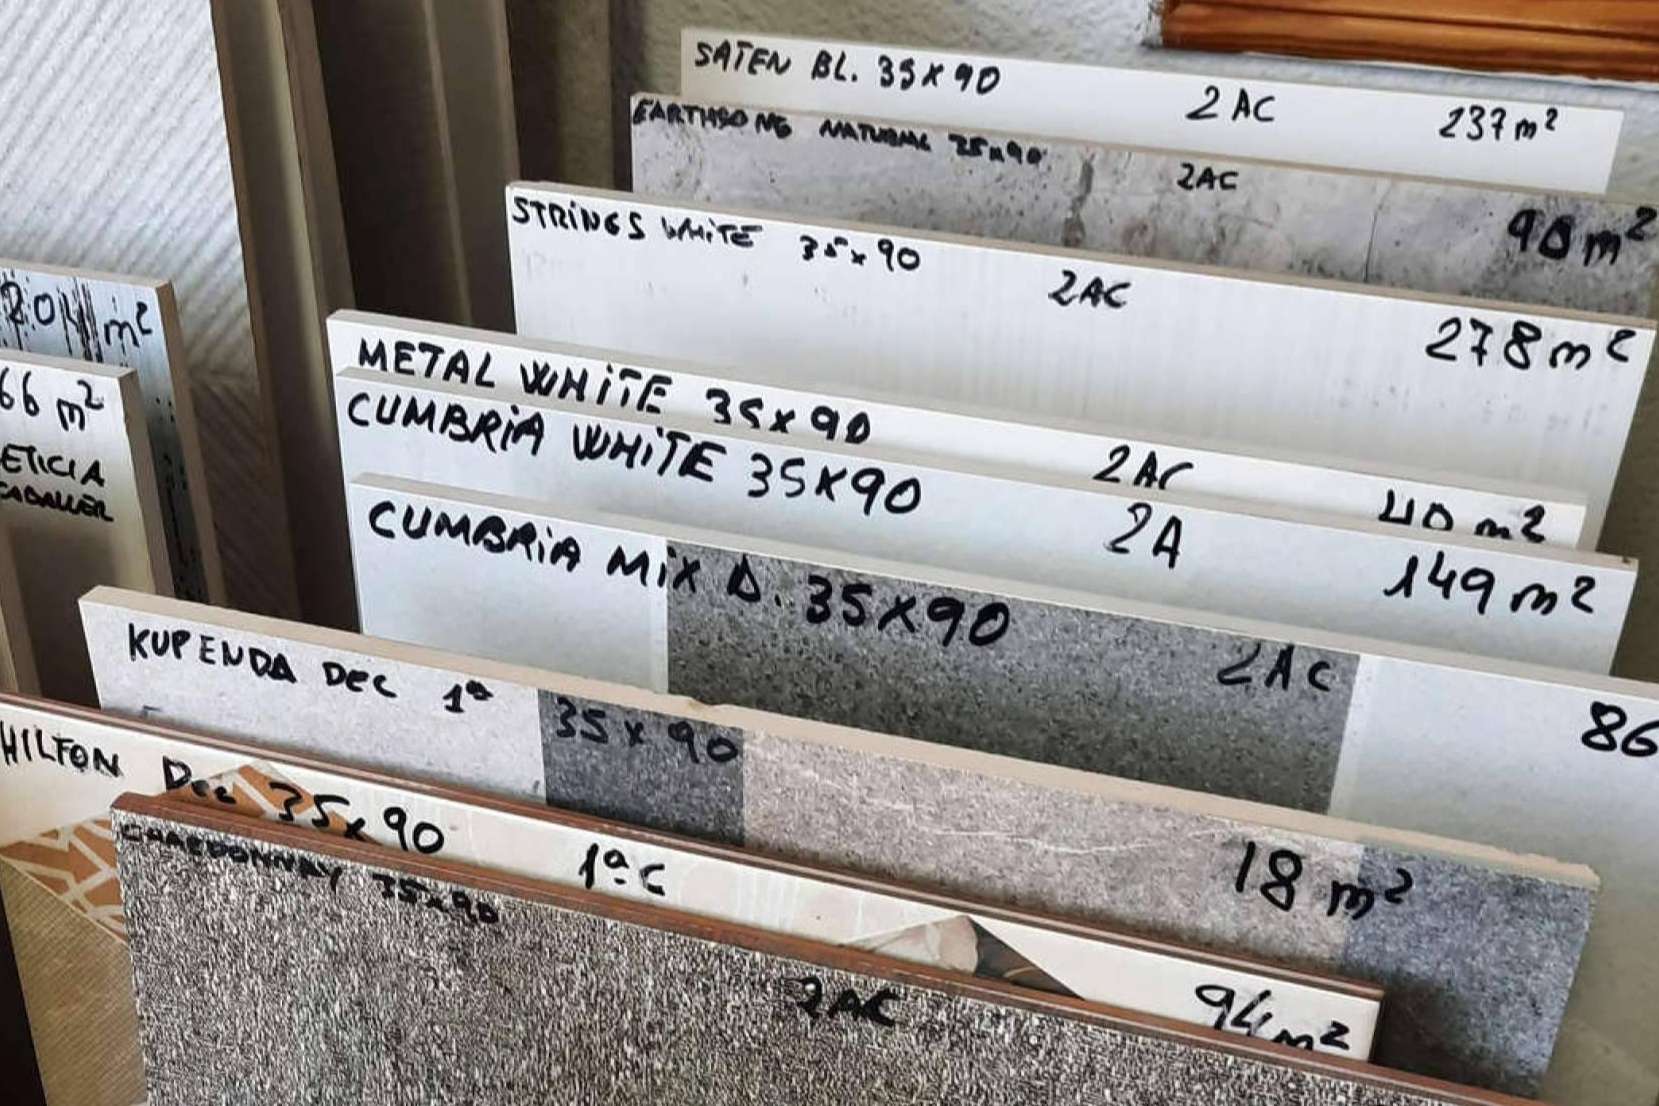 SATEN BL. 35x90 2 AC 237 m²
EARTHSONG NATURAL 35x90 2AC 90 m²
STRiNGS WHiTE 35x90 2AC 278 m²
METAL WHiTE 35x90 2AC 40 m²
CUMBRiA WHiTE 35x90 2A 149 m²
CUMBRiA MiX D. 35x90 2AC 86
KUPENDA DEC 1ª 35x90 18 m²
HILTON Dec 35x90 1ª C 94 m²
CHARDONNAY 35x90 2AC
m²
66 m²
ETICIA